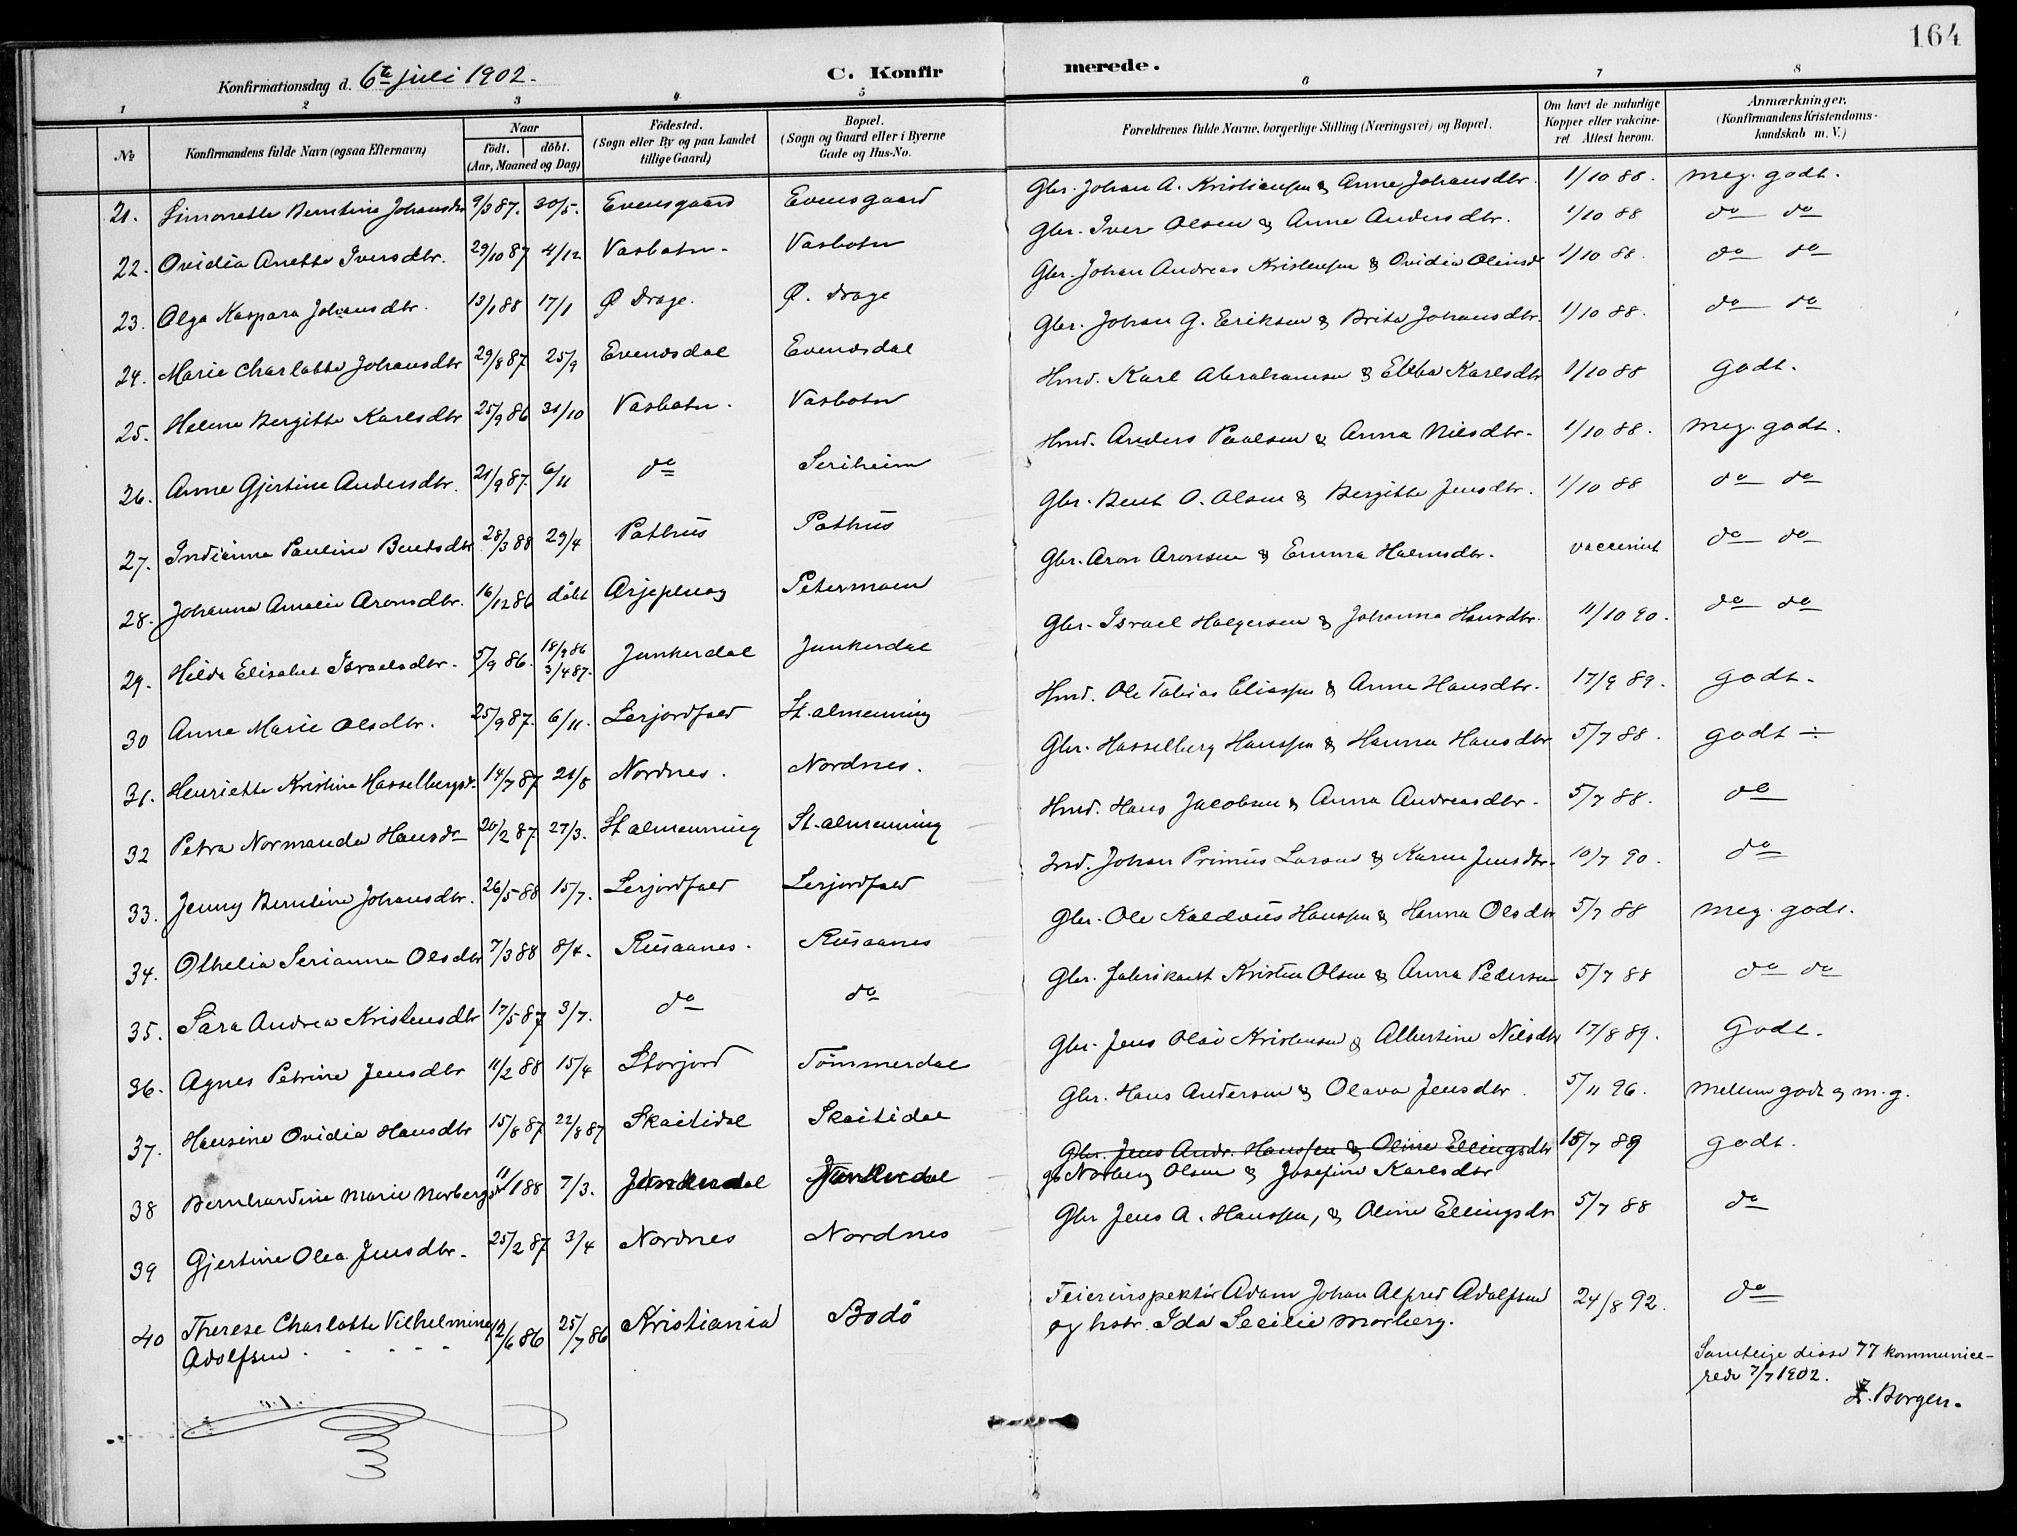 164
Konfirmationsdag d. 6te juli 1902.
C. Konfirmerede.
1 2 3 4 5 6 7 8
No
Konfirmandens fulde Navn (ogsaa Efternavn)
Naar
födt. döbt.
(Aar, Maaned og Dag)
Födested.
(Sogn eller By og paa Landet
tillige Gaard)
Bopæl.
(Sogn og Gaard eller i Byerne
Gade og Hus-No.
Forældrenes fulde Navne, borgerlige Stilling (Næringsvei) og Bopæl.
Om havt de naturlige
Kopper eller vakcine-
ret. Attest herom.
Anmærkninger.
(Konfirmandens Kristendoms-
kundskab m. V.)
21. Simonette Berntine Johansdtr 9/3 87. 30/5. Evensgaard Evensgaard Gbr. Johan A. Kristiansen & Anne Johansdtr. 1/10 88. meg. godt.
22. Ovidia Anette Iversdtr. 29/10 87 4/12 Vasbotn. Vasbotn Gbr. Iver Olsen & Anne Andersdtr. 1/10 88 do do
23. Olga Kaspara Johansdtr. 13/1 88 17/1 Ø Drage. Ø. Drage Gbr. Johan Andreas Kristensen & Ovidia Olinsd 1/10 88. do do
24. Marie Charlotte Johansdtr 29/8 87 25/9 Evensdal Evensdal Gbr. Johan G. Eriksen & Brita Johansdtr. 1/10 88. do do
25. Helene Bergitte Karlsdtr 25/9 86 31/10 Vasbotn. Vasbotn Hmd. Karl Abrahamsen & Ebba Karlsdtr 1/10 88 godt.
26. Anne Gjertine Andersdtr. 21/9 87. 6/11 do Seriheim Hmd. Anders Paulsen & Anna Nilsdtr. 1/10 88. meg. godt.
27. Indianna Pauline Bentsdtr 28/3 88 29/4 Pothus Pothus Gbr. Bent O. Olsen & Bergitte Jensdtr. 1/10 88 do do
28. Johanna Amalie Aronsdtr. 16/12 86 døbt Arjepluog Petermoen Gbr. Aron Aronsen & Emma Holmsdtr. vaccinert do do
29. Hilda Elisabet Israelsdtr. 5/9 86. 18/9 86 3/4 87. Junkerdal Junkerdal Gbr. Israel Holgersen & Johanna Hansdtr. 11/10 90. do do
30 Anna Marie Olsdtr. 25/9 87. 6/11. Lerjordfald St. almenning Hmd. Ole Tobias Eliassen & Anne Hansdtr. 17/9 89. godt.
31. Henriette Kristine Hasselbergsd. 14/7 87 21/8 Nordnes. Nordnes. Gbr. Hasselberg Hanssen & Hanna Hansdtr 5/7 88. godt ÷
32 Petra Normanda Hansdr 20/2 87. 27/3. St almenning St. almenning Hmd. Hans Jacobsen & Anna Andreasdtr. 5/7 88. do
33. Jenny Berntine Johansdtr. 26/5 88 15/7. Lerjordfald Lerjordfald Ind. Johan Primus Larsen & Karen Jensdtr. 10/7 90. do
34. Othelia Serianna Olsdtr 7/3 88 8/4. Rusaanes. Rusaanes Gbr. Ole Kaldæus Hanssen & Hanna Olsdtr 5/7 88 meg. godt.
35. Sara Andrea Kristensdtr 17/5 87 3/7. do do Gbr. Fabrikant Kristen Olsen & Anna Pedersen 5/7 88 do do
36. Agnes Petrine Jensdtr 11/2 88 15/4 Storjord Tømmerdal Gbr. Jens Olai Kristensen & Albertine Nilsdtr 17/8 89. Godt.
37. Hansine Ovidia Hansdtr 15/8 87 22/8 87 Skaitidal Skaitidal Gbr. Hans Andersen & Olava Jensdtr. 5/11 96. mellem godt og m.g.
38 Bernhardine Marie Norbergsd 11/1 88 7/3. Junkerdal Junkerdal Gbr. Jens Andr. Hanssen & Oline Ellingsdtr 18/7 89 godt.
gb Norberg Olsen & Josefine Karlsdtr
39 Gjertine Olea Jensdtr. 25/2 87 3/4 Nordnes Nordnes Gbr Jens A. Hanssen, & Oline Ellingsdtr 5/7 88 do
40 Therese Charlotte Vilhelmine 12/6 86 25/7 86 Kristiania Bodö Feierinspektör Adam Johan Alfred Adolfsen 24/8 92. do
Adolfsen og hstr. Ida Secilie Morberg.
Samtlige disse 77 kommunice-
rede 7/7 1902.
Z. Borgen.